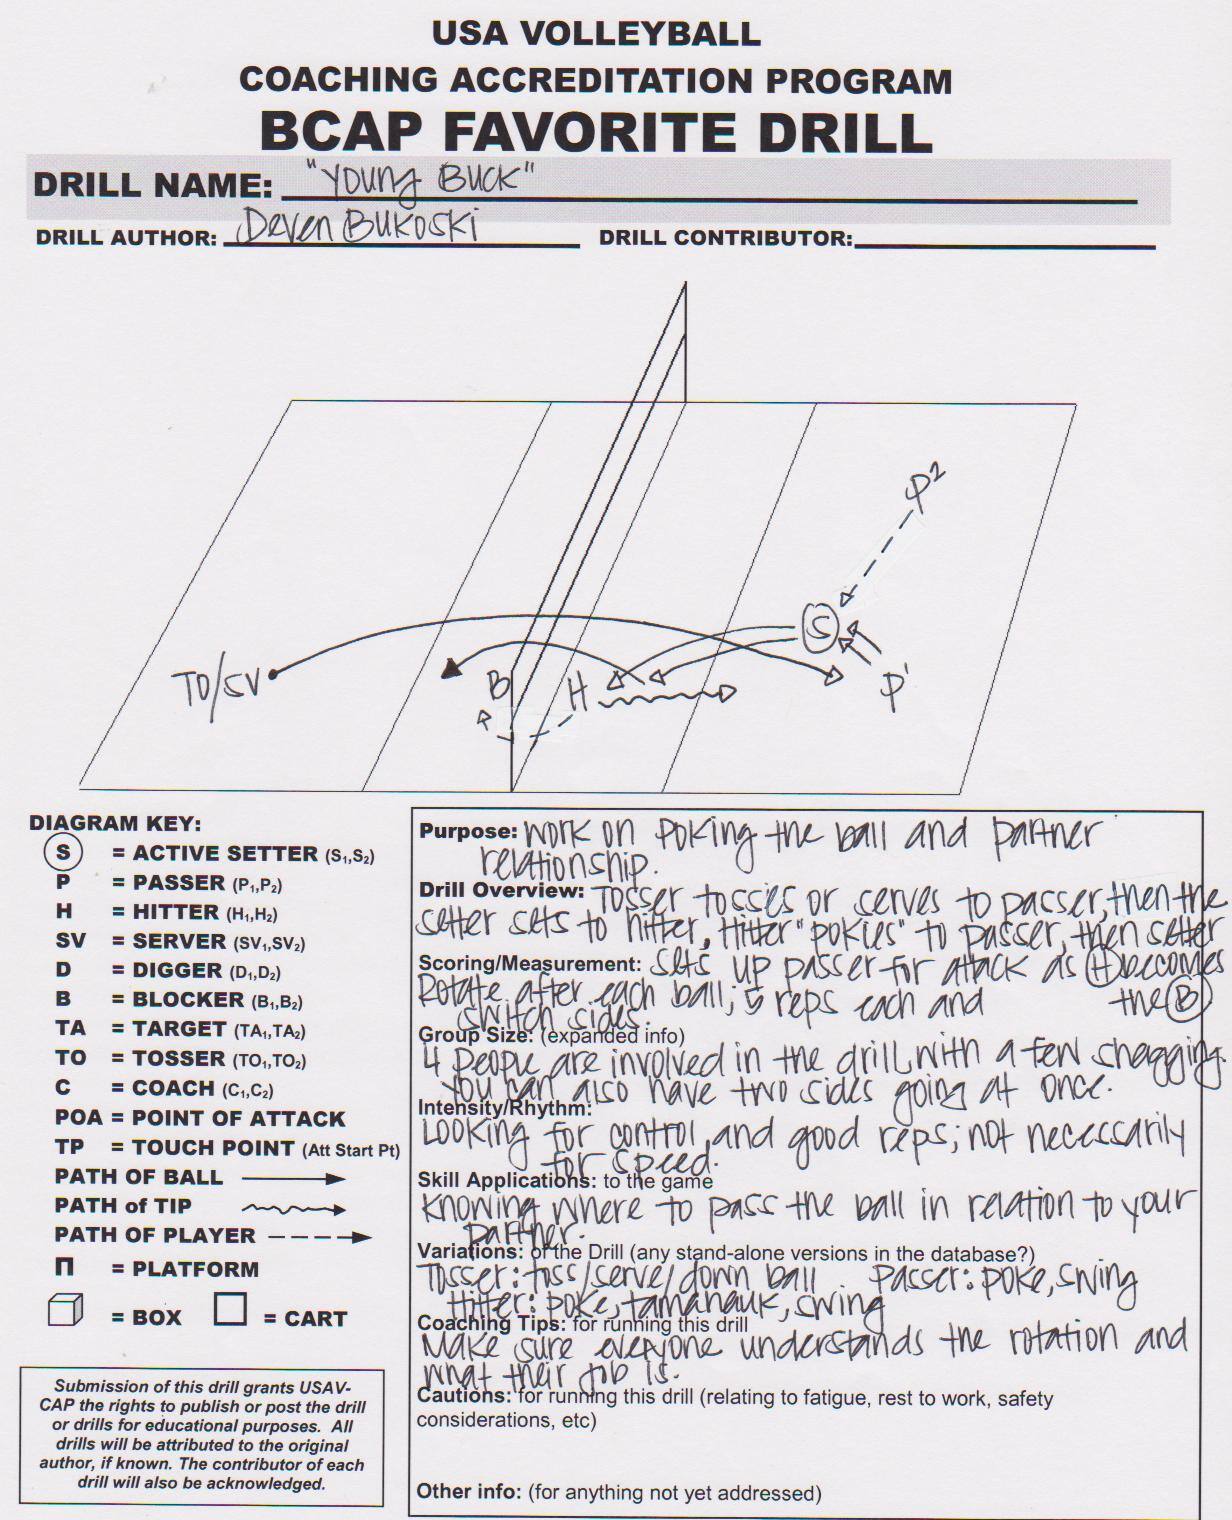 USA VOLLEYBALL
COACHING ACCREDITATION PROGRAM
BCAP FAVORITE DRILL
DRILL NAME: "Young Buck"
DRILL AUTHOR: Deven Bukoski DRILL CONTRIBUTOR:
P²
S
TO/SV B H P¹
DIAGRAM KEY:
S = ACTIVE SETTER (S₁,S₂)
P = PASSER (P₁,P₂)
H = HITTER (H₁,H₂)
SV = SERVER (SV₁,SV₂)
D = DIGGER (D₁,D₂)
B = BLOCKER (B₁,B₂)
TA = TARGET (TA₁,TA₂)
TO = TOSSER (TO₁,TO₂)
C = COACH (C₁,C₂)
POA = POINT OF ATTACK
TP = TOUCH POINT (Att Start Pt)
PATH OF BALL
PATH of TIP
PATH OF PLAYER
П = PLATFORM
= BOX = CART
Submission of this drill grants USAV-
CAP the rights to publish or post the drill
or drills for educational purposes. All
drills will be attributed to the original
author, if known. The contributor of each
drill will also be acknowledged.
Purpose: Work on poking the ball and partner
relationship.
Drill Overview: Tosser tosses or serves to passer, then the
setter sets to hitter, Hitter "pokies" to passer, then setter
Scoring/Measurement: sets up passer for attack as H becomes
Rotate after each ball; 5 reps each and the B
switch sides.
Group Size: (expanded info)
4 people are involved in the drill, with a few shagging.
You can also have two sides going at once.
Intensity/Rhythm:
Looking for control, and good reps; not necessarily
for speed.
Skill Applications: to the game
Knowing where to pass the ball in relation to your
partner.
Variations: of the Drill (any stand-alone versions in the database?)
Tosser: toss/serve/down ball Passer: poke, swing
Hitter: poke, tamahauk, swing
Coaching Tips: for running this drill
Make sure everyone understands the rotation and
what their job is.
Cautions: for running this drill (relating to fatigue, rest to work, safety
considerations, etc)
Other info: (for anything not yet addressed)